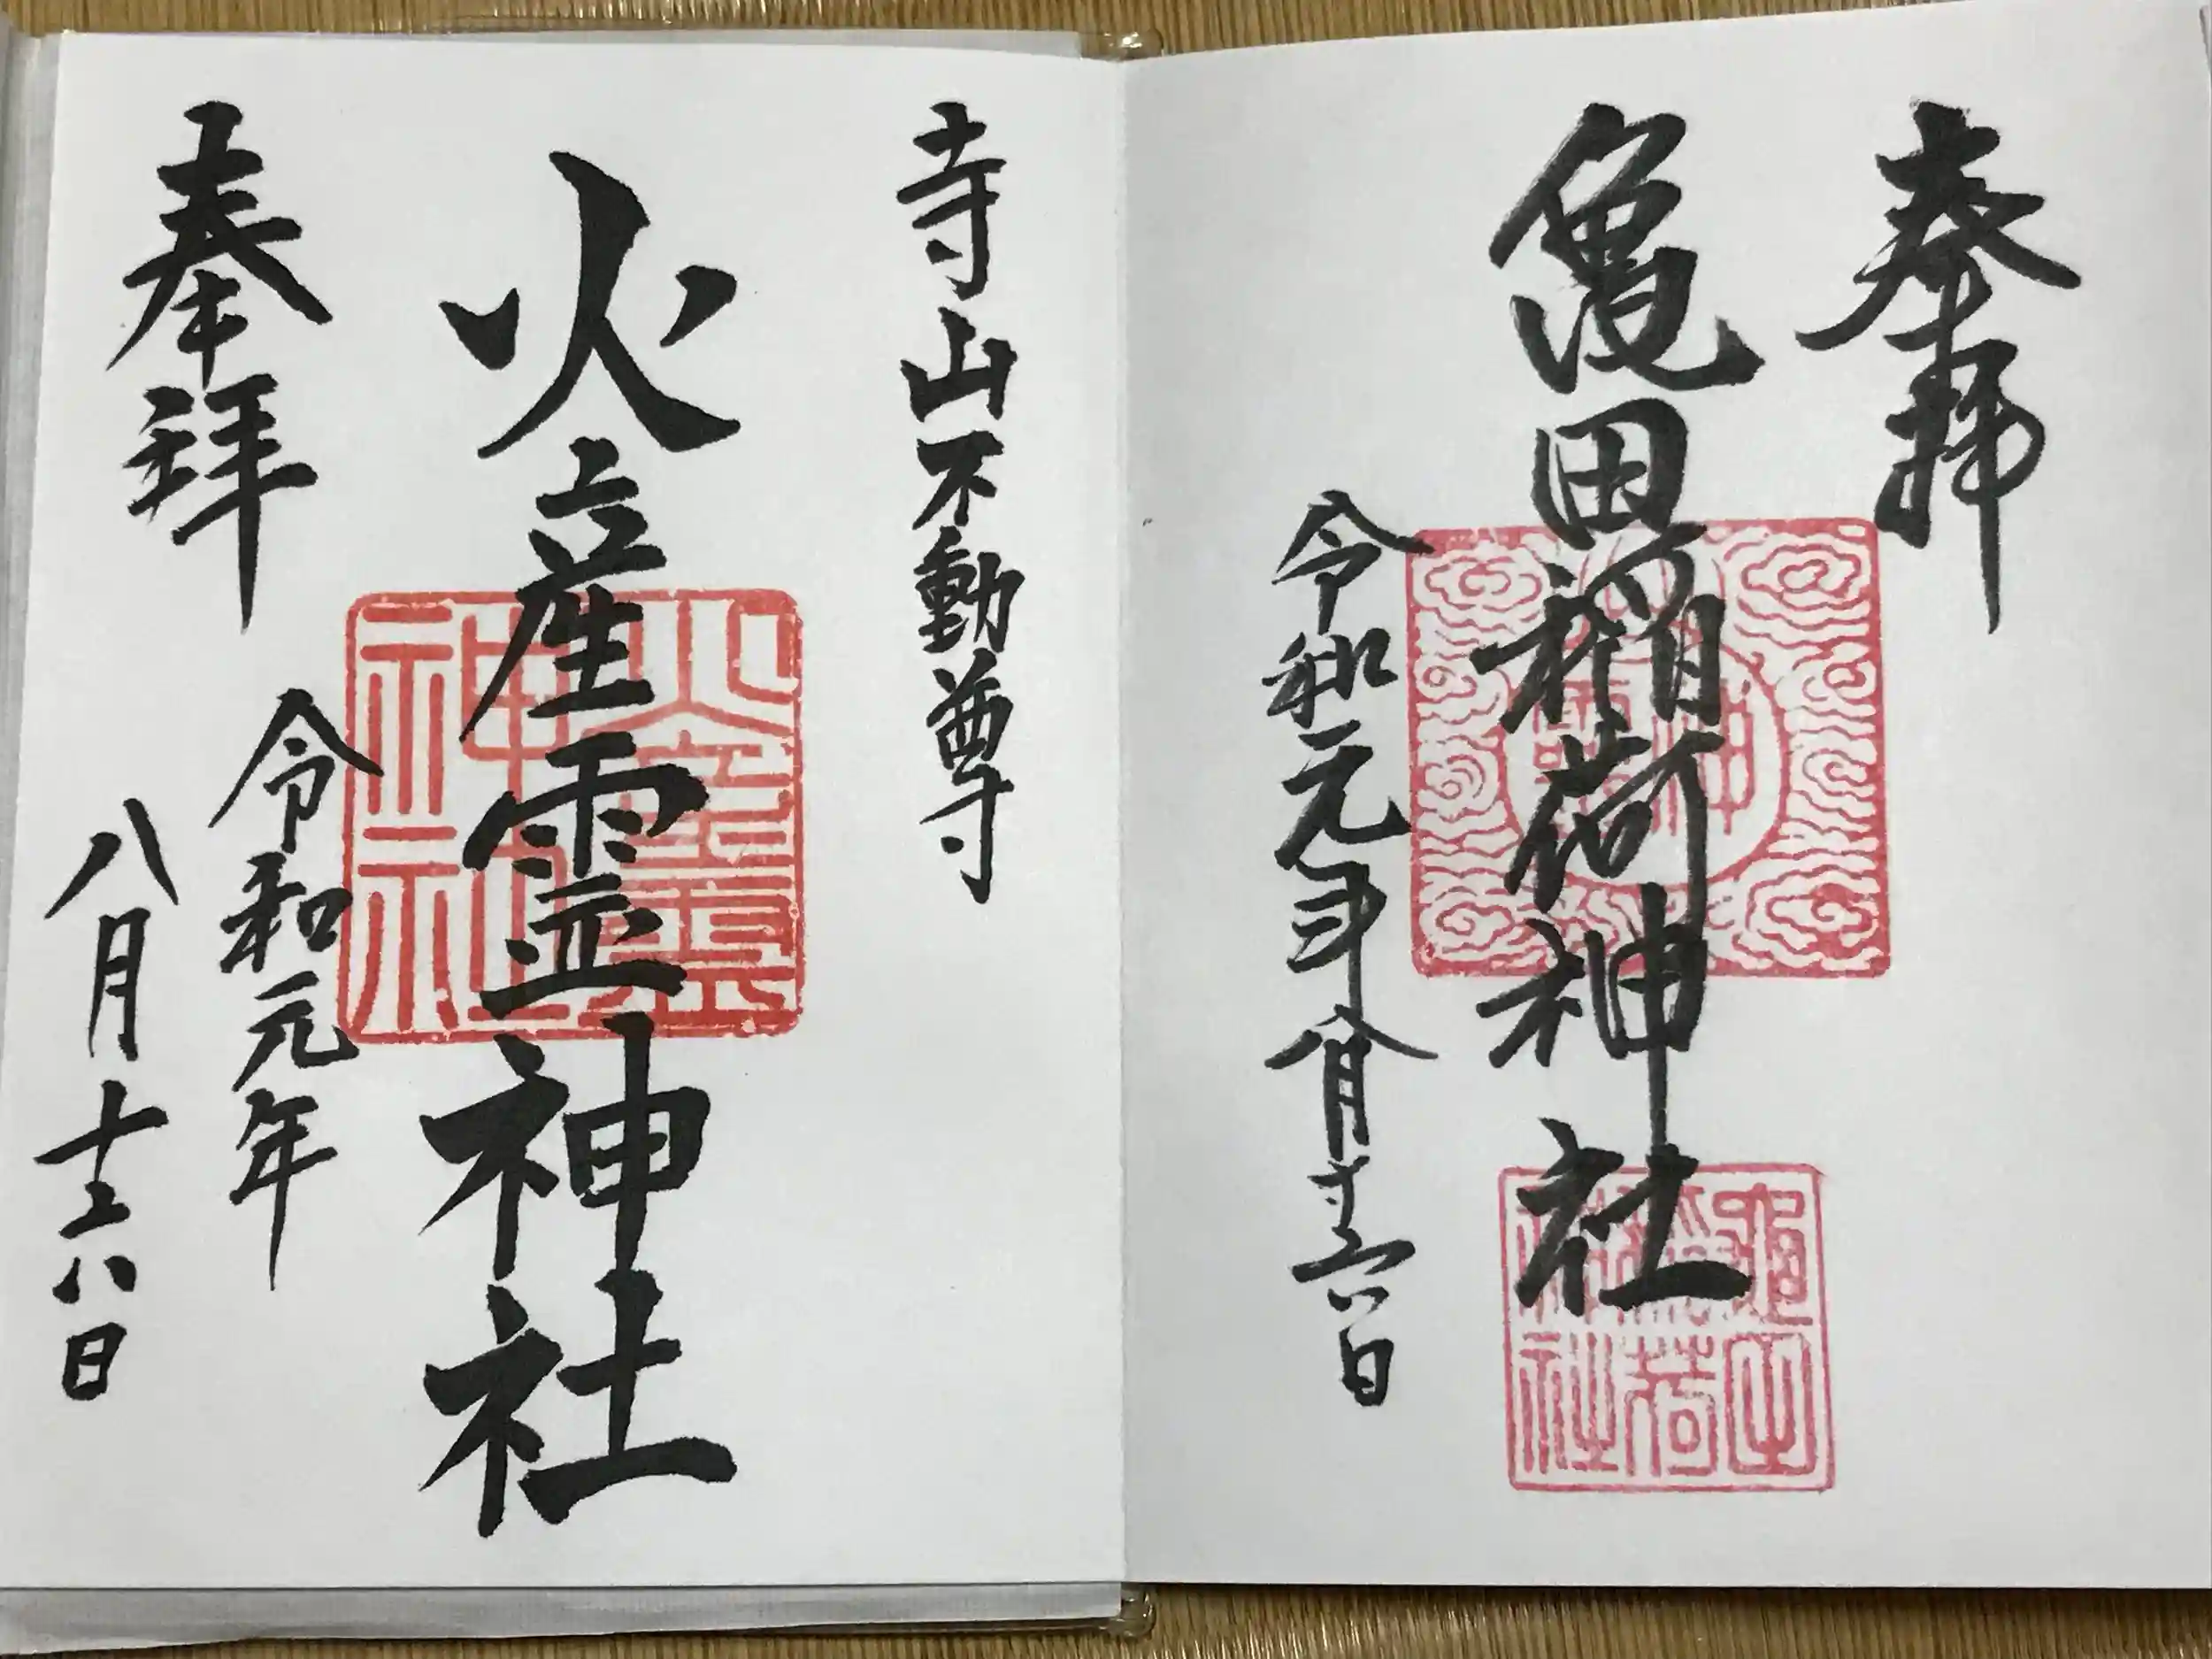 奉拝
亀田稲荷神社
亀田稲荷神社
令和元年八月十六日
寺山不動尊
火産霊神社
火産霊神社
奉拝
令和元年
八月十六日